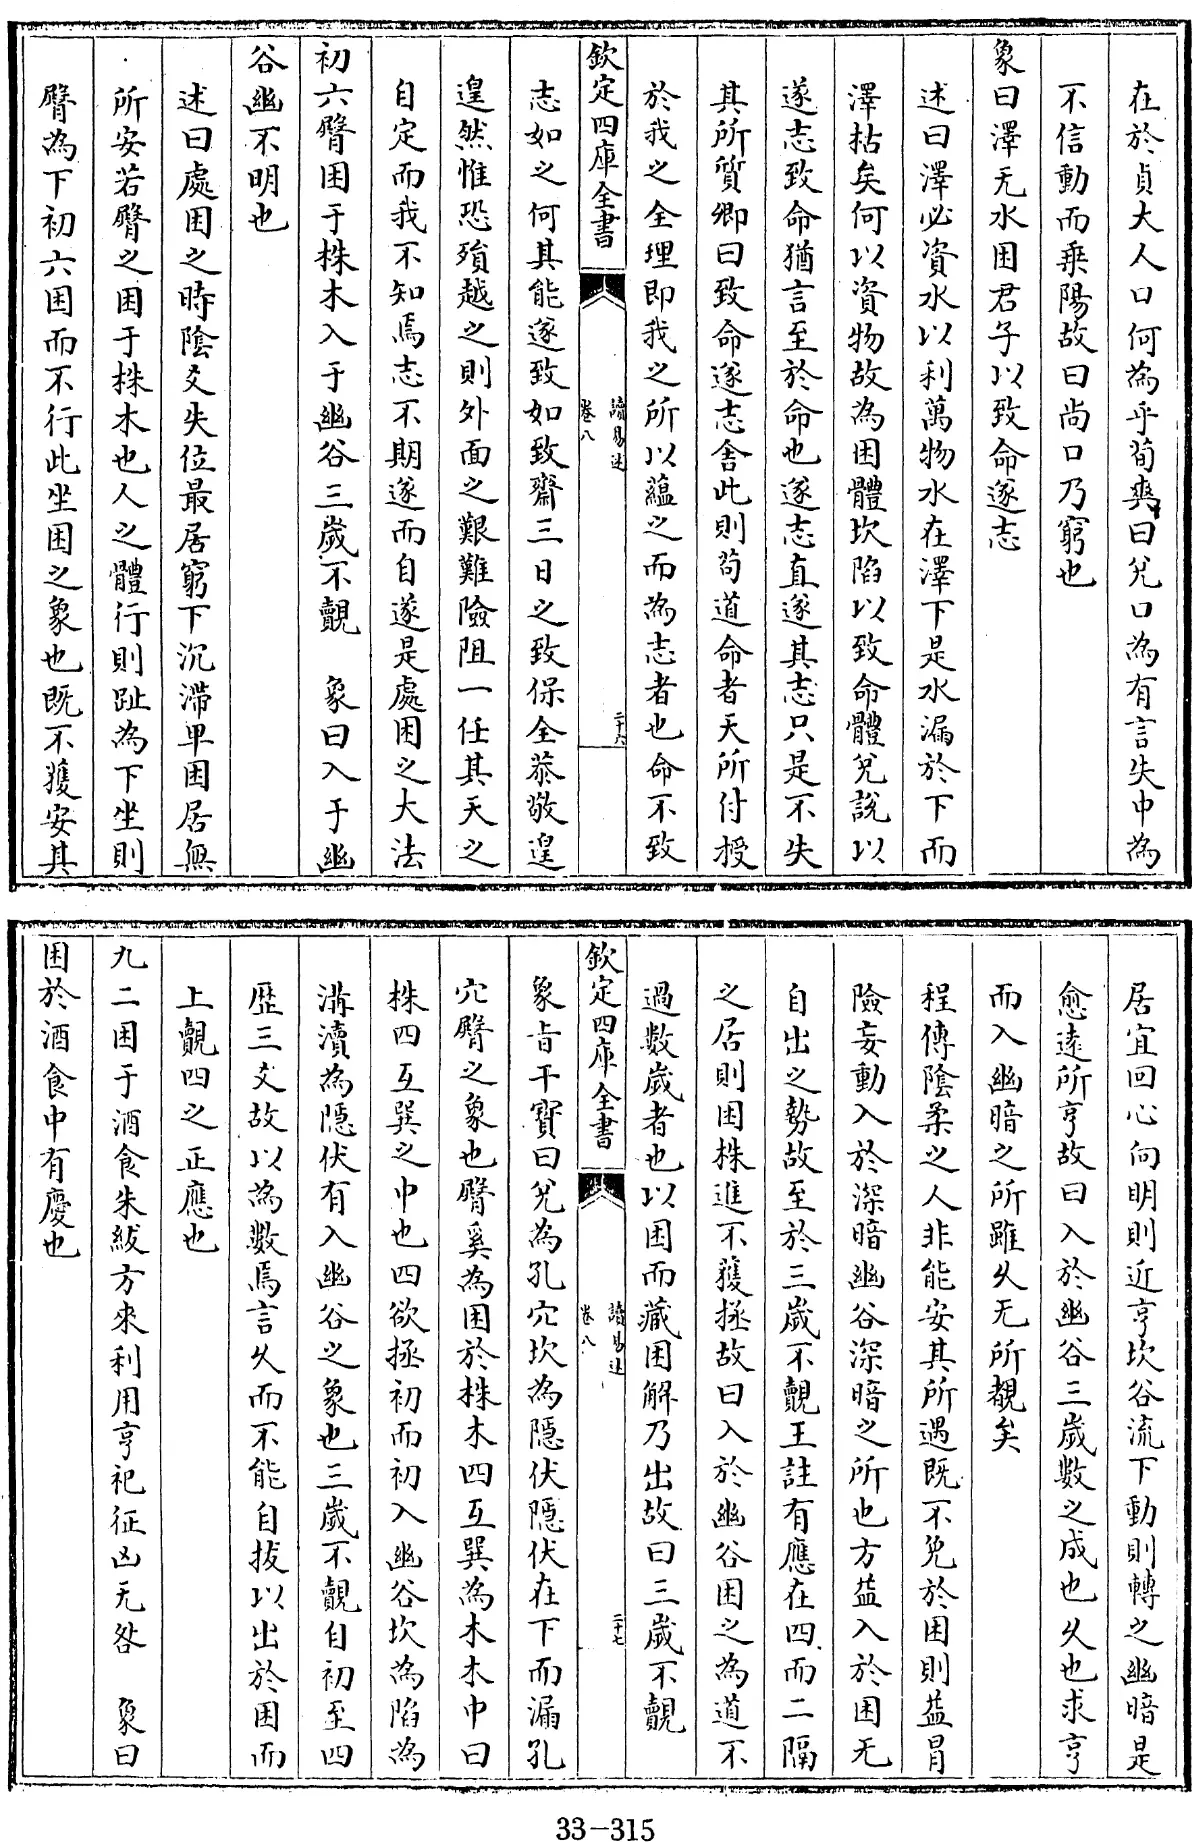 在於貞大人口何為乎荀爽曰兌口為有言失中為
不信動而乗陽故曰尚口乃窮也
象曰澤无水困君子以致命遂志
述曰澤必資水以利萬物水在澤下是水漏於下而
澤枯矣何以資物故為困體坎陷以致命體兌說以
遂志致命猶言至於命也遂志直遂其志只是不失
其所質卿曰致命遂志舍此則苟道命者天所付授
於我之全理即我之所以蘊之而為志者也命不致
欽定四庫全書
讀易述
卷八
二十六
志如之何其能遂致如致齋三日之致保全恭敬遑
遑然惟恐殞越之則外面之艱難險阻一任其天之
自定而我不知焉志不期遂而自遂是處困之大法
初六臀困于株木入于幽谷三歲不覿　象曰入于幽
谷幽不明也
述曰處困之時陰爻失位最居窮下沉滯卑困居無
所安若臀之困于株木也人之體行則趾為下坐則
臀為下初六困而不行此坐困之象也既不獲安其
居宜回心向明則近亨坎谷流下動則轉之幽暗是
愈遠所亨故曰入於幽谷三歲數之成也久也求亨
而入幽暗之所雖久无所覩矣
程傳陰柔之人非能安其所遇既不免於困則益冒
險妄動入於深暗幽谷深暗之所也方益入於困无
自出之勢故至於三歲不覿王註有應在四而二隔
之居則困株進不獲拯故曰入於幽谷困之為道不
過數歲者也以困而藏困解乃出故曰三歲不覿
欽定四庫全書
讀易述
卷八
二十七
象旨干寶曰兌為孔穴坎為隱伏隱伏在下而漏孔
穴臀之象也臀奚為困於株木四互巽為木木中曰
株四互巽之中也四欲拯初而初入幽谷坎為陷為
溝瀆為隱伏有入幽谷之象也三歲不覿自初至四
歷三爻故以為數焉言久而不能自拔以出於困而
上覿四之正應也
九二困于酒食朱紱方來利用亨祀征凶无咎　象曰
困於酒食中有慶也
33-315